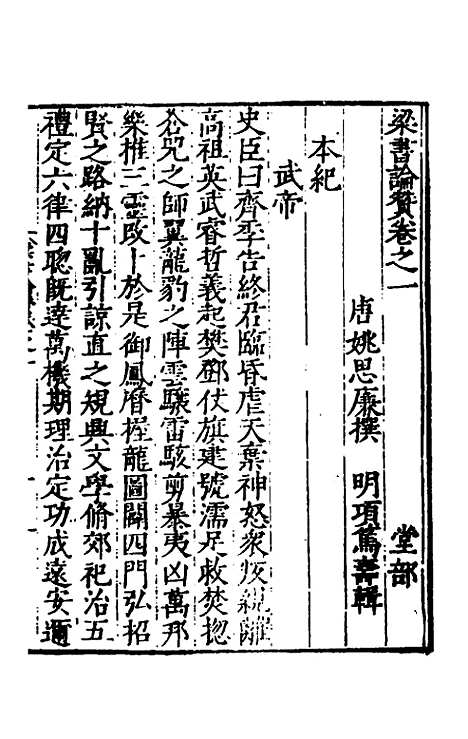 梁書論贊卷之一
唐姚思廉撰 明項篤壽輯
堂部
本紀
武帝
史臣曰齊季告終君臨昏虐天棄神怒衆叛親離
高祖英武睿哲義起樊鄧仗旗建號濡足救焚揔
蒼兕之師翼龍豹之陣雲驤雷駭剪暴夷凶萬邦
樂推三靈改卜於是御鳳曆握龍圖闢四門弘招
賢之路納十亂引諒直之規興文學脩郊祀治五
禮定六律四聰旣達萬機期理治定功成遠安邇